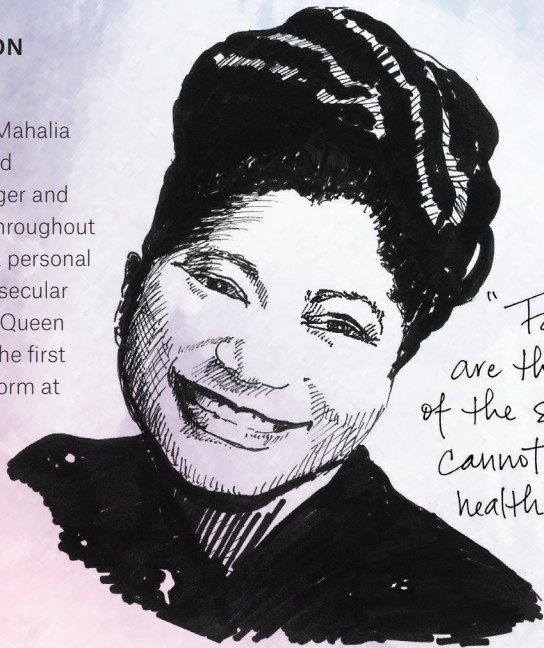 ON
Mahalia
d
ger and
hroughout
personal
secular
Queen
he first
orm at
"
are th
of the s
cannot
health